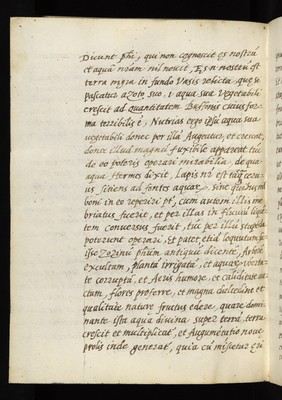 Dicunt phi, qui non cognoscit es nostrũ
et aquã nrãm nil novit, Es n. nostrũ est
terra nigra in fundo Vasis relicta, quę si
pascatur azoto suo, i. aqua sua Vegetabili
crescit ad quantitatem
ma terribilis ẽ, Nutrias ergo ipsũ aqua sua
vegetabili donec per illã Augeatur, et crescat,
donec illud magnũ fuxibile appareat, tũc
de eo poteris operari mirabilia, de qua
aqua Hermes dixit, Lapis nr est tãq cer
uus sitiens ad fontes aquar, sine quibus nil
boni in eo reperiri pt, cum autem illis ine
briatus fuerit, et per illas in fluuiũ liqui
tem conversus fuerit, tũc per illũ stupenda
poterunt operari, Et patet etiã loquutum fu
isse Zozimũ phũm antiquũ dicente, Arborẽ
excultam, plantã irrigatã, et aquarũ
te corruptã, et Aeris humore, et caliditate au
ctam, flores proferre, et magna dulcedine et
qualitate nature fructus edere, quare domi
nante ista aqua divina super terrã, terra
crescit et multiplicat, et Augmẽtatio noue
prolis inde generat, quia cũ miscetur